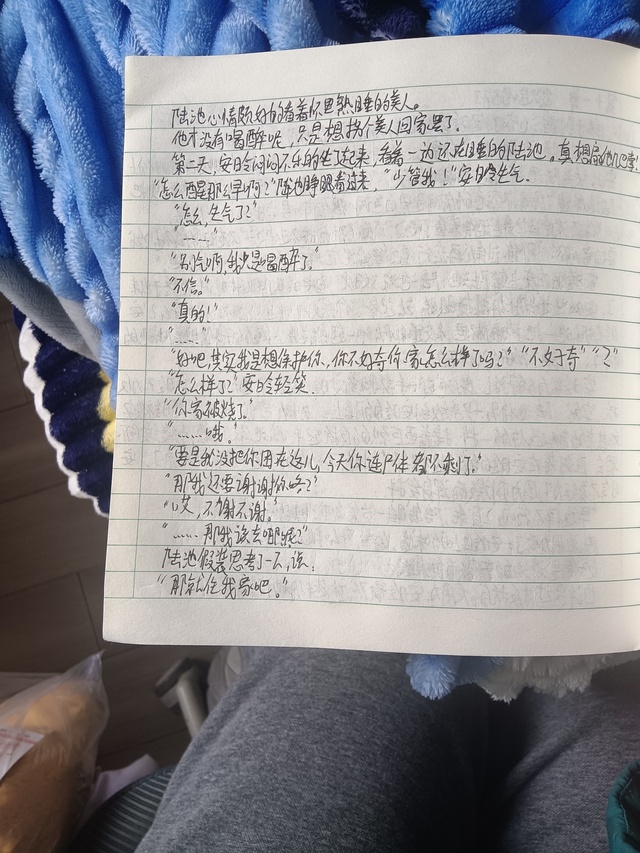 陆池心情颇好的看着怀里熟睡的美人。
他才没有喝醉呢，只是想拐个美人回家罢了。
第二天，安日冷闷闷不乐的坐了起来，看着一边还在睡的陆池。真想扇他几巴掌！
“怎么醒那么早啊？”陆池睁眼看过来，“少管我！”安日冷生气.
“怎么，生气了？”
“……”
“别气啊，我只是喝醉了。”
“不信。”
“真的！”
“……”
“好吧，其实我是想保护你，你不好奇你家怎么样了吗？”“不好奇”“？”
“怎么样了？”安日冷轻笑.
“你家被烧了。”
“……哦。”
“要是我没把你困在这儿，今天你连尸体都不剩了。”
“那我还要谢谢你咯？”
“哎，不谢不谢。”
“……那我该去哪呢？”
陆池假装思考了一下，说：
“那就住我家吧。”